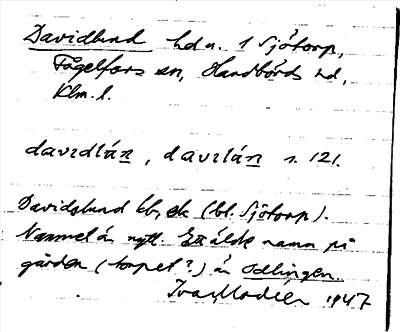 Davidslund hd u. 1 Sjötorp,
Fågelfors sn, Handbörds hd,
Klm. l.
davidlán, davilán s. 121.
Davidslund bb, ek (bl. Sjötorp).
Namnet är nytt. Ett äldre namn på
gården (torpet?) är Odlingen.
Ivar Modéer 1947